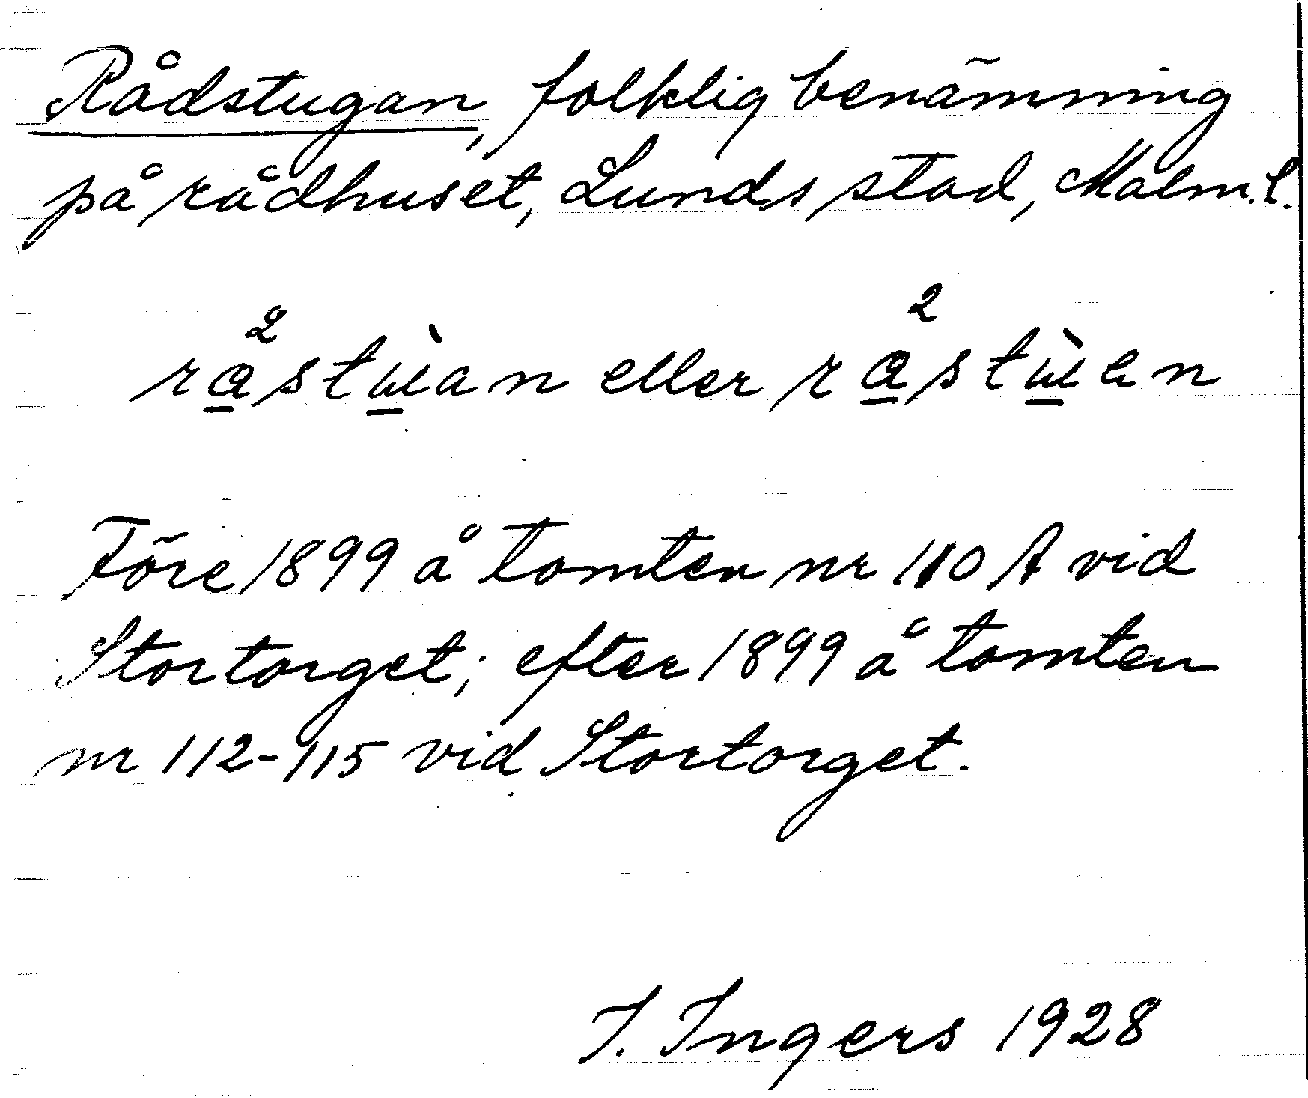 Rådstugan, folklig benämning
på rådhuset, Lunds stad, Malm. l.
rå²stẁan eller rå²stẁan
Före 1899 å tomten nr 110 A vid
Stortorget; efter 1899 å tomten
nr 112-115 vid Stortorget.
I. Ingers 1928